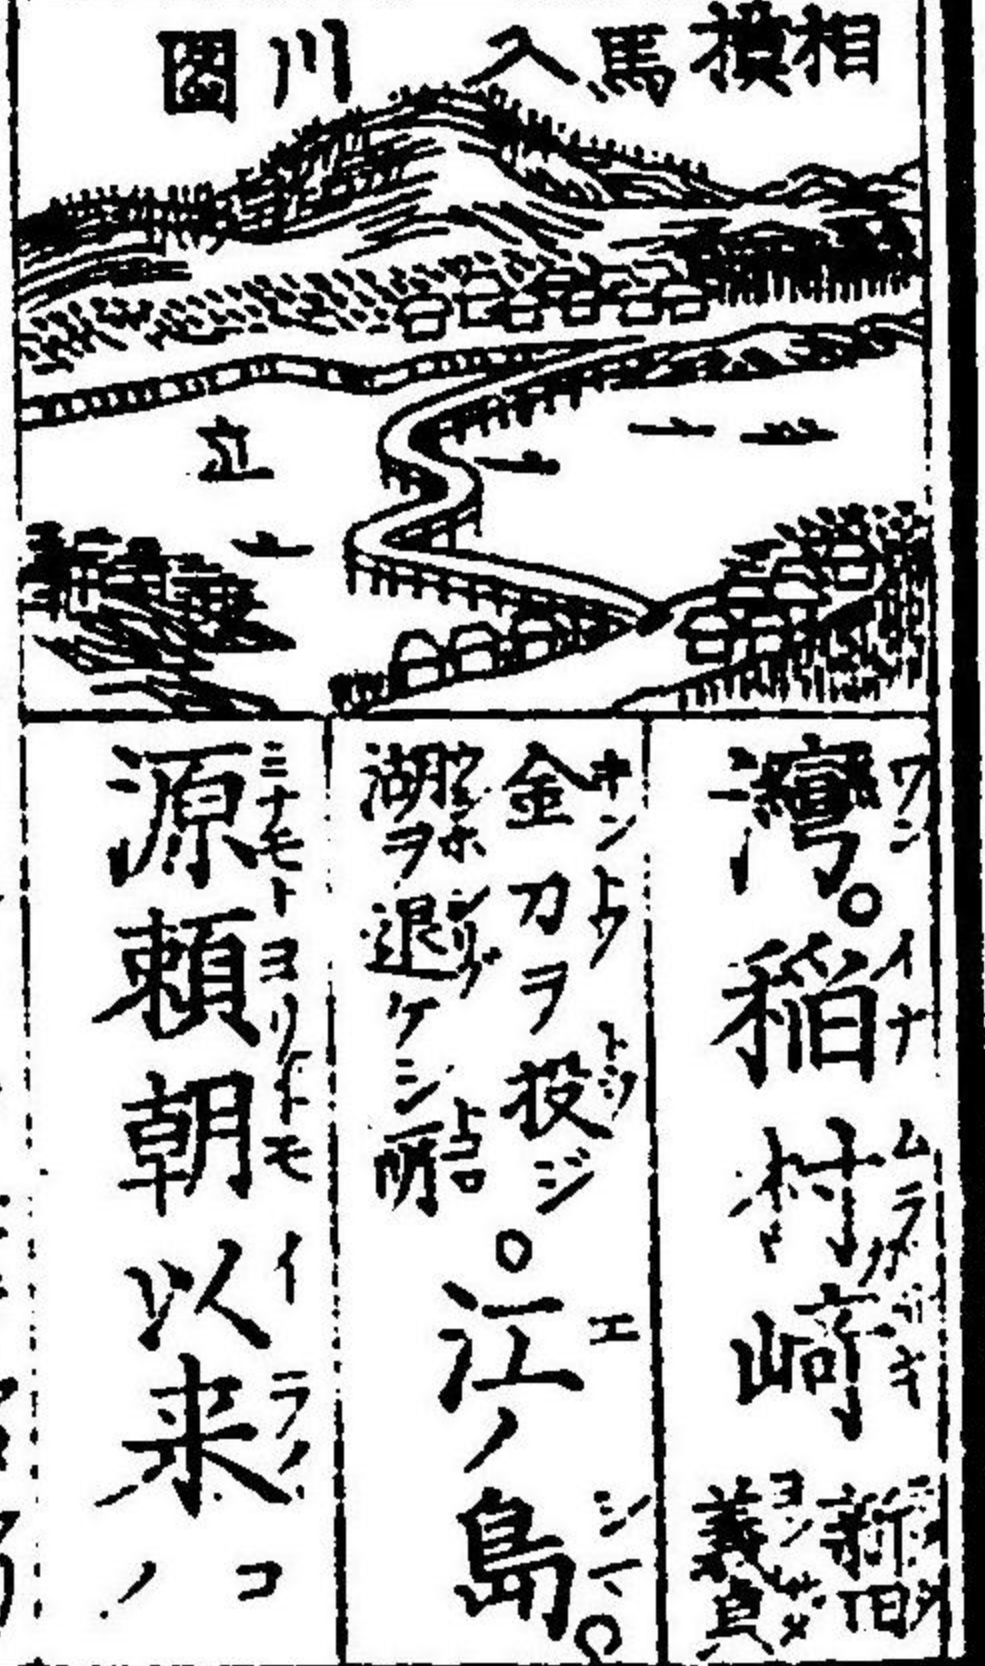 相模馬入川圖
灣。稲村﨑 新田
義貞
金刀ヲ投ジ
湖ヲ退ケシ所
○江ノ島○
源頼朝以来ノ